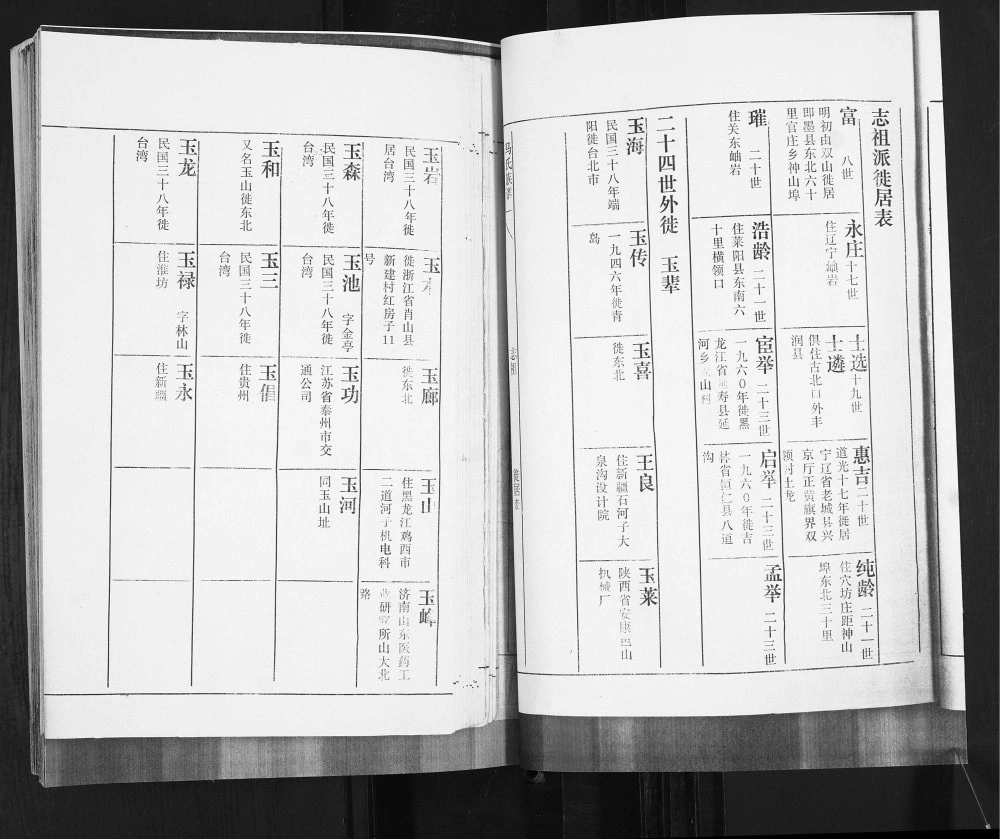 志祖派徙居表
富 八世
明初由双山徙居
即墨县东北六十
里官庄乡神山埠
永庄 十七世
住辽宁岫岩
士选 十九世
士遴
俱住古北口外丰
润县
惠吉 二十世
道光十七年徙居
宁辽省老城县兴
京厅正黄旗界双
领村土龙
纯龄 二十一世
住穴坊庄距神山
埠东北三十里
璀 二十世
住关东岫岩
浩龄 二十一世
住莱阳县东南六
十里横领口
宦举 二十三世
一九六〇年徙黑
龙江省延寿县延
河乡 山村
启举 二十三世
一九六〇年徙吉
林省恒仁县八道
沟
孟举 二十三世
二十四世外徙 玉辈
玉海
民国三十八年端
阳徙台北市
玉传
一九四六年徙青
岛
玉喜
徙东北
玉良
住新疆石河子大
泉沟设计院
玉莱
陕西省安康巴山
机械厂
马氏族谱
志祖
徙居表
玉岩
民国三十八年徙
居台湾
玉
徙浙江省肖山县
新建村红房子11
号
玉廊
徙东北
玉山
住黑龙江鸡西市
二道河子机电科
玉峰
济南山东医药工
业研究所山大北
路
玉森
民国三十八年徙
台湾
玉池 字金亭
民国三十八年徙
台湾
玉功
江苏省泰州市交
通公司
玉河
同玉山址
玉和
又名玉山徙东北
玉三
民国三十八年徙
台湾
玉倡
住贵州
玉龙
民国三十八年徙
台湾
玉禄 字林山
住淮坊
玉永
住新疆